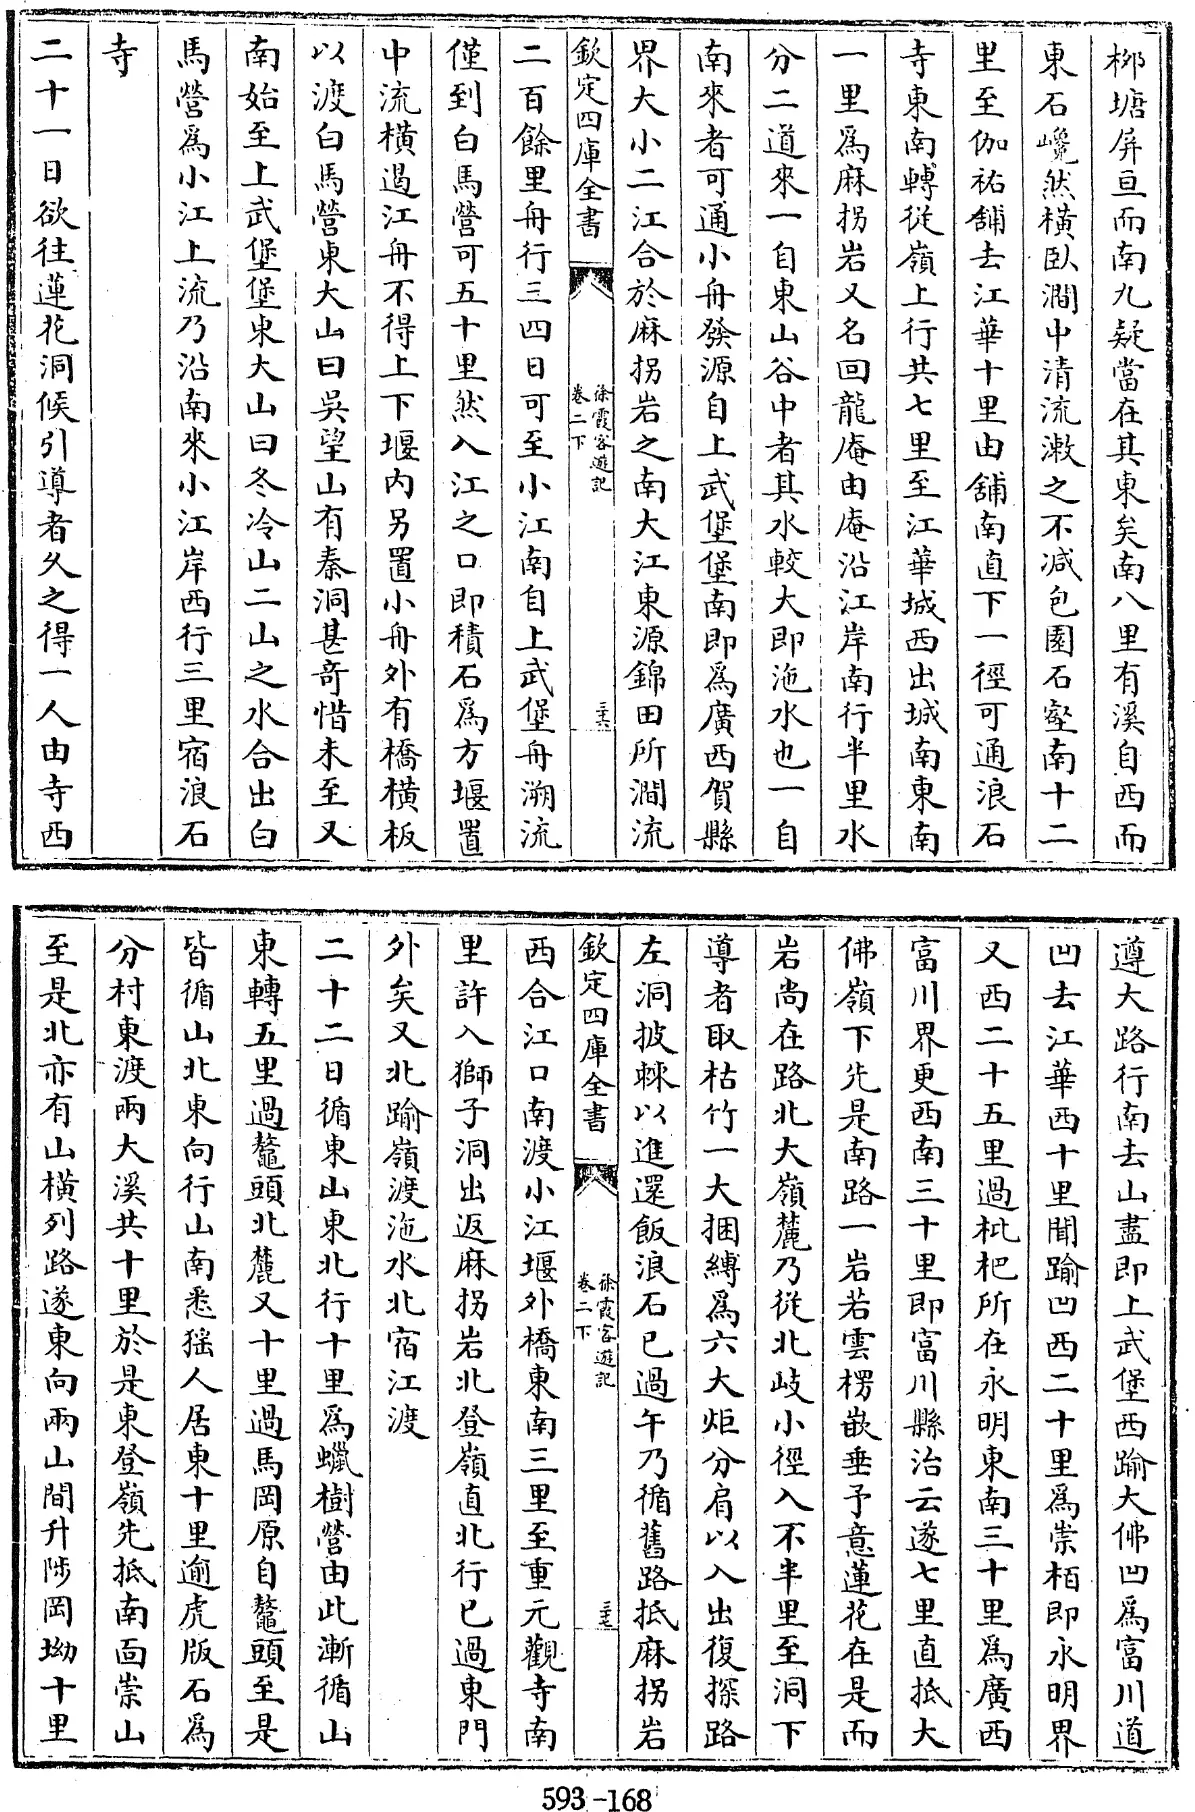 栁塘屏亘而南九疑當在其東矣南八里有溪自西而
東石巉然橫臥澗中清流漱之不减包園石壑南十二
里至伽祐舖去江華十里由舖南直下一徑可通浪石
寺東南轉從嶺上行共七里至江華城西出城南東南
一里爲麻拐岩又名回龍庵由庵沿江岸南行半里水
分二道來一自東山谷中者其水較大即沲水也一自
南來者可通小舟發源自上武堡堡南即爲廣西賀縣
界大小二江合於麻拐岩之南大江東源錦田所澗流
欽定四庫全書
徐霞客遊記
卷二下
三六
二百餘里舟行三四日可至小江南自上武堡舟溯流
僅到白馬營可五十里然入江之口即積石爲方堰置
中流橫遏江舟不得上下堰内另置小舟外有橋橫板
以渡白馬營東大山曰吳望山有秦洞甚竒惜未至又
南始至上武堡堡東大山曰冬冷山二山之水合出白
馬營爲小江上流乃沿南來小江岸西行三里宿浪石
寺
二十一日欲往蓮花洞候引導者久之得一人由寺西
遵大路行南去山盡即上武堡西踰大佛凹爲富川道
凹去江華西十里聞踰凹西二十里爲崇栢即永明界
又西二十五里過枇杷所在永明東南三十里爲廣西
富川界更西南三十里即富川縣治云遂七里直抵大
佛嶺下先是南路一岩若雲楞嵌垂予意蓮花在是而
岩尚在路北大嶺麓乃從北岐小徑入不半里至洞下
導者取枯竹一大捆縛爲六大炬分肩以入出復探路
左洞披棘以進還飯浪石已過午乃循舊路抵麻拐岩
欽定四庫全書
徐霞客遊記
卷二下
三七
西合江口南渡小江堰外橋東南三里至重元觀寺南
里許入獅子洞出返麻拐岩北登嶺直北行已過東門
外矣又北踰嶺渡沲水北宿江渡
二十二日循東山東北行十里爲蠟樹營由此漸循山
東轉五里過鼇頭北麓又十里過馬岡原自鼇頭至是
皆循山北東向行山南悉猺人居東十里逾虎版石爲
分村東渡兩大溪共十里於是東登嶺先抵南靣崇山
至是北亦有山橫列路遂東向兩山間升陟岡坳十里
593-168